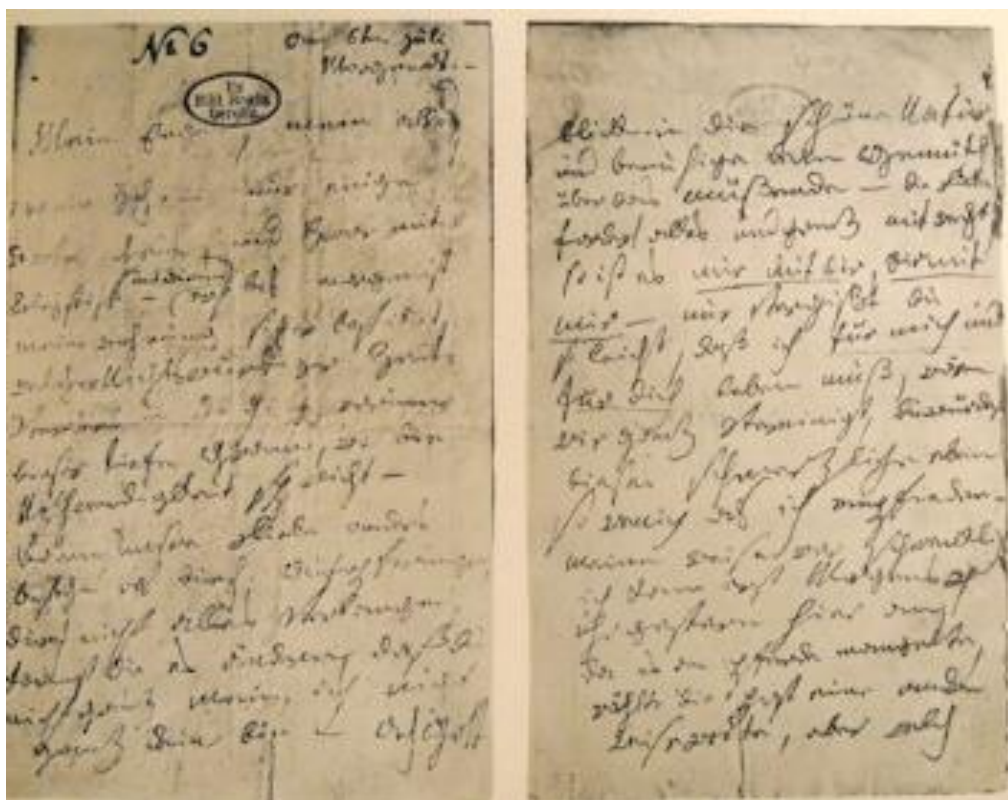 No 6 am 6ten Juli
Morgends. –
Mein Engel, mein alles
mein Ich. – nur einige
Worte heute, und zwar mit
Bleystift –
meine Wohnung sicher bestimt,
welcher Nichtswürdiger Zeit-
in d. g. – warum
dieser tiefe Gram, wo die
Nothwendigkeit spricht –
Kann unsre Liebe anders
bestehn als durch Aufopferungen,
durch nicht alles verlangen,
kannst du es ändern, daß du
nicht ganz mein, ich nicht
ganz dein bin – Ach Gott
blick in die schöne Natur
und beruhige dein Gemüth
über das müßende – die Liebe
fordert alles und ganz mit recht,
so ist es mir mit dir, dir mit
mir – nur vergißt du
so leicht, daß ich für mich und
für dich leben muß, wären
wir ganz vereinigt, du würdest
dieses schmerzliche eben
so wenig als ich empfinden –
meine Reise war schrecklich
ich kam erst Morgens 4
uhr gestern hier an,
da es an Pferde mangelte,
wählte die Post eine andere
Reiseroute, aber welch